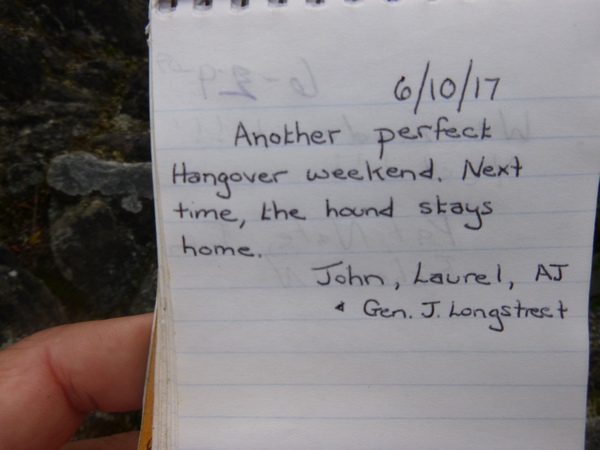 6/10/17
Another perfect
Hangover weekend. Next
time, the hound stays
home.
John, Laurel, AJ
& Gen. J. Longstreet